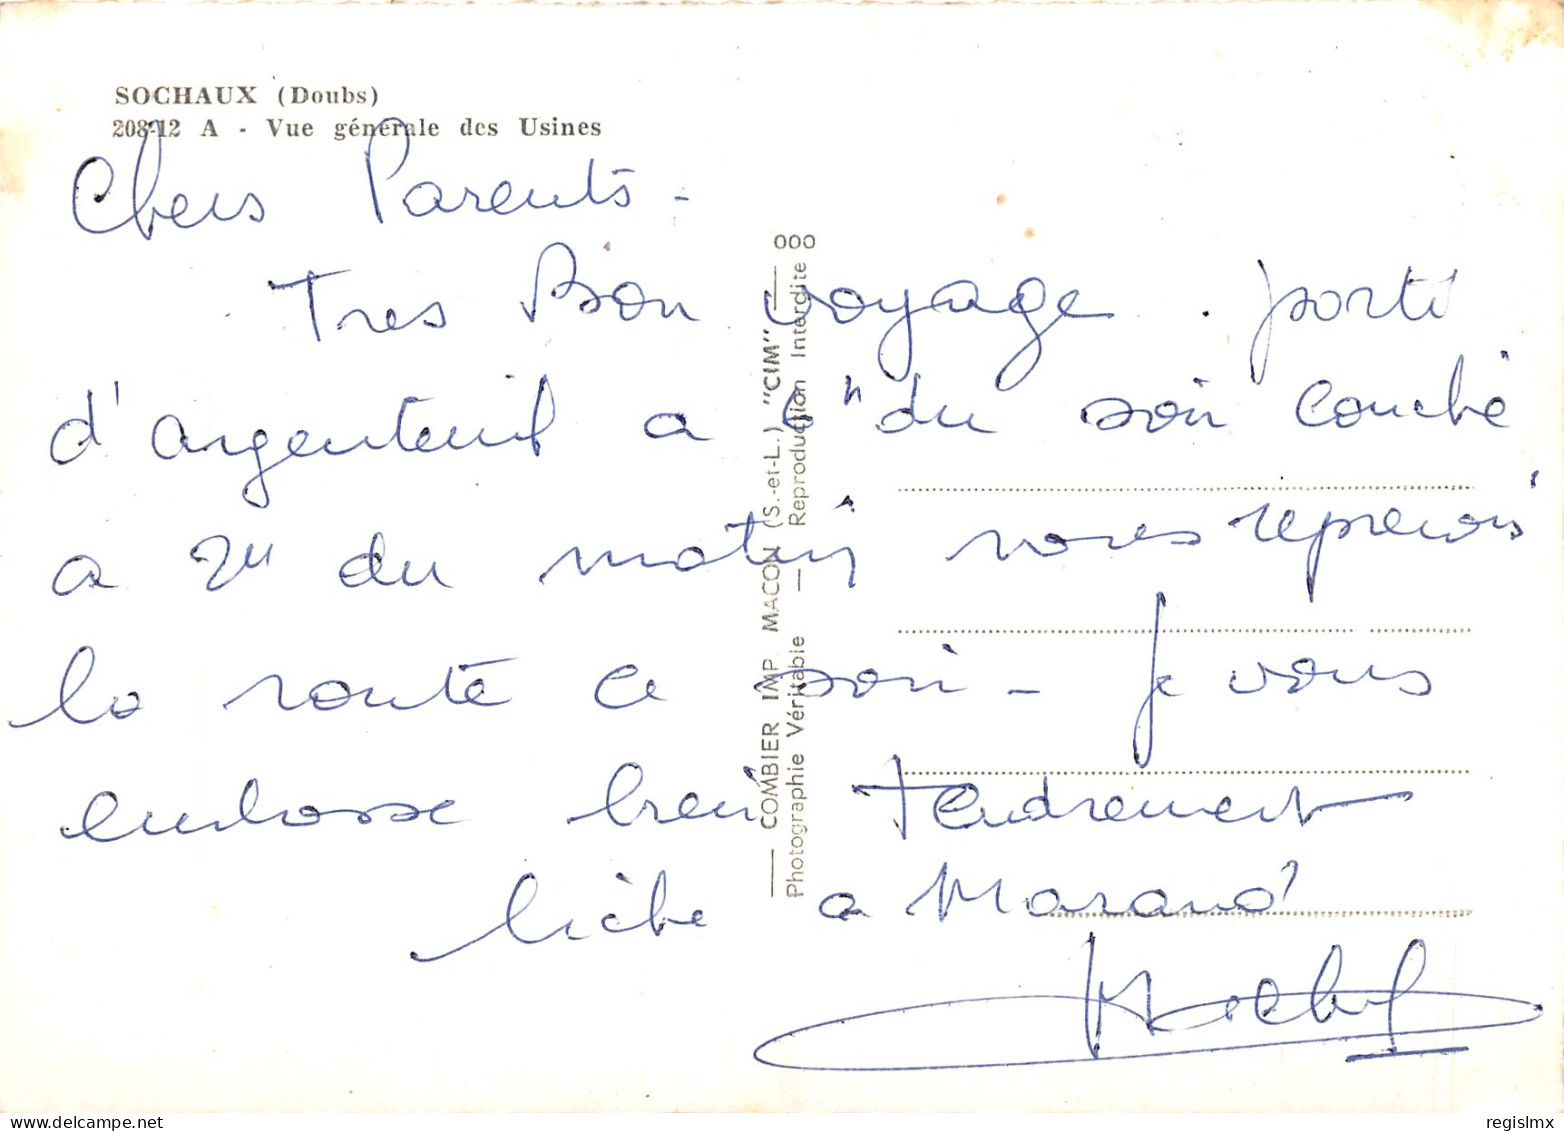 SOCHAUX (Doubs)
208-12 A - Vue générale des Usines
Chers Parents -
Tres Bon voyage . parti
d'argenteuil a 6h du soir couché
a 2H du matin nous reprenons
la route ce soir - je vous
embrasse bien Tendrement
a
000
COMBIER IMP. MACON (S.-et-L.) "CIM"
Photographie Véritable — Reproduction Interdite
regislmx